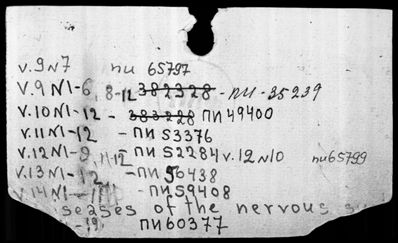 v.9 N7 пи 65797
v.9 N1-6, 8-12 382328 - пи - 35239
v.10 N1-12 - 383228 ПИ 49400
v.11 N1-12 - ПИ 53376
v.12 N1-9, 11-12 ПИ 52284 v.12 N10 пи 65799
v.13 N1-12 - ПИ 56438
v.14 N1- - ПИ 59408
seases of the nervous
-12 ПИ 60377